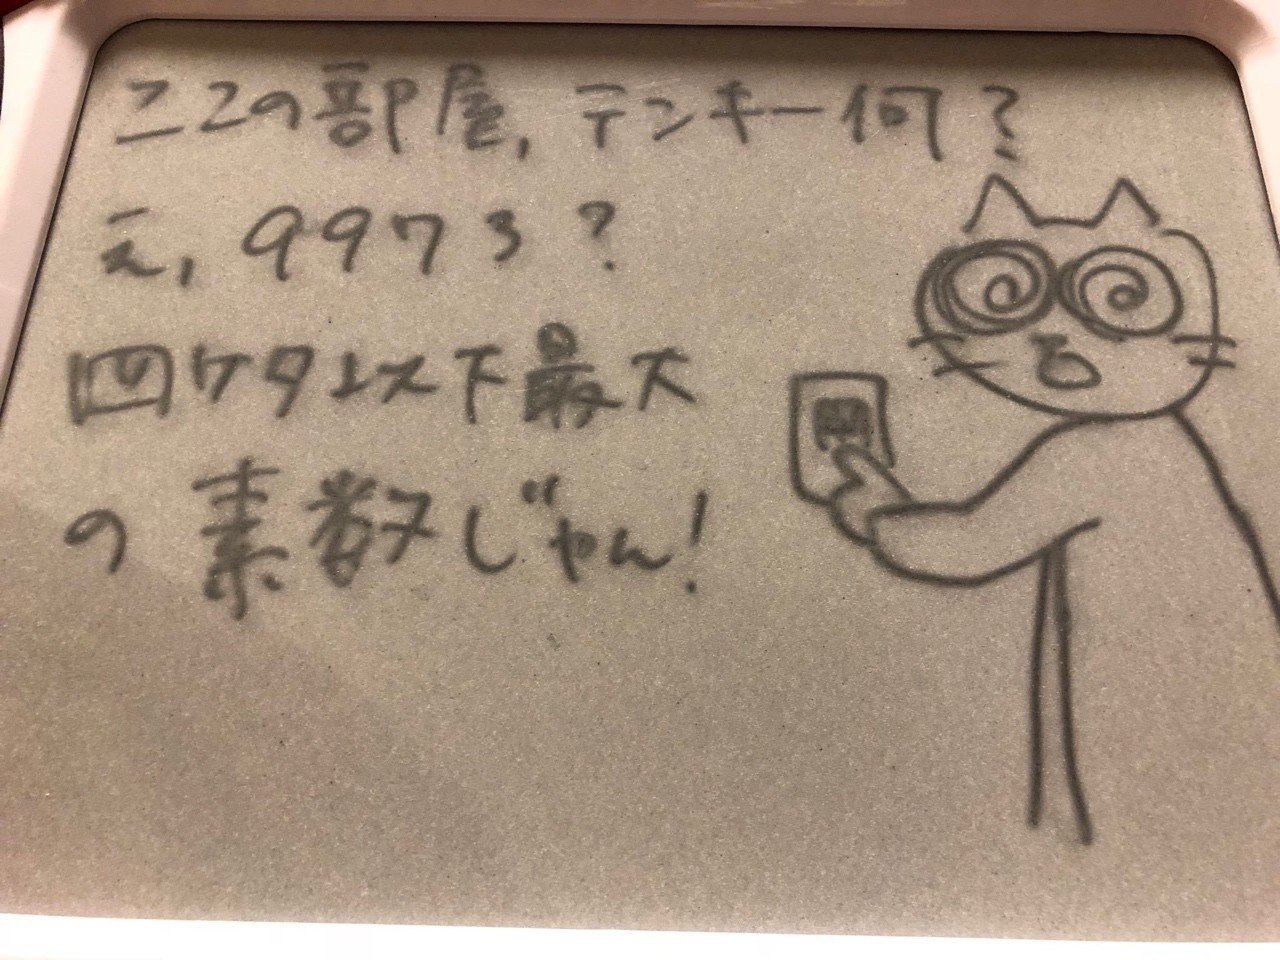 ここの部屋, テンキー何?
え, 9973?
四ケタ以下最大
の素数じゃん!